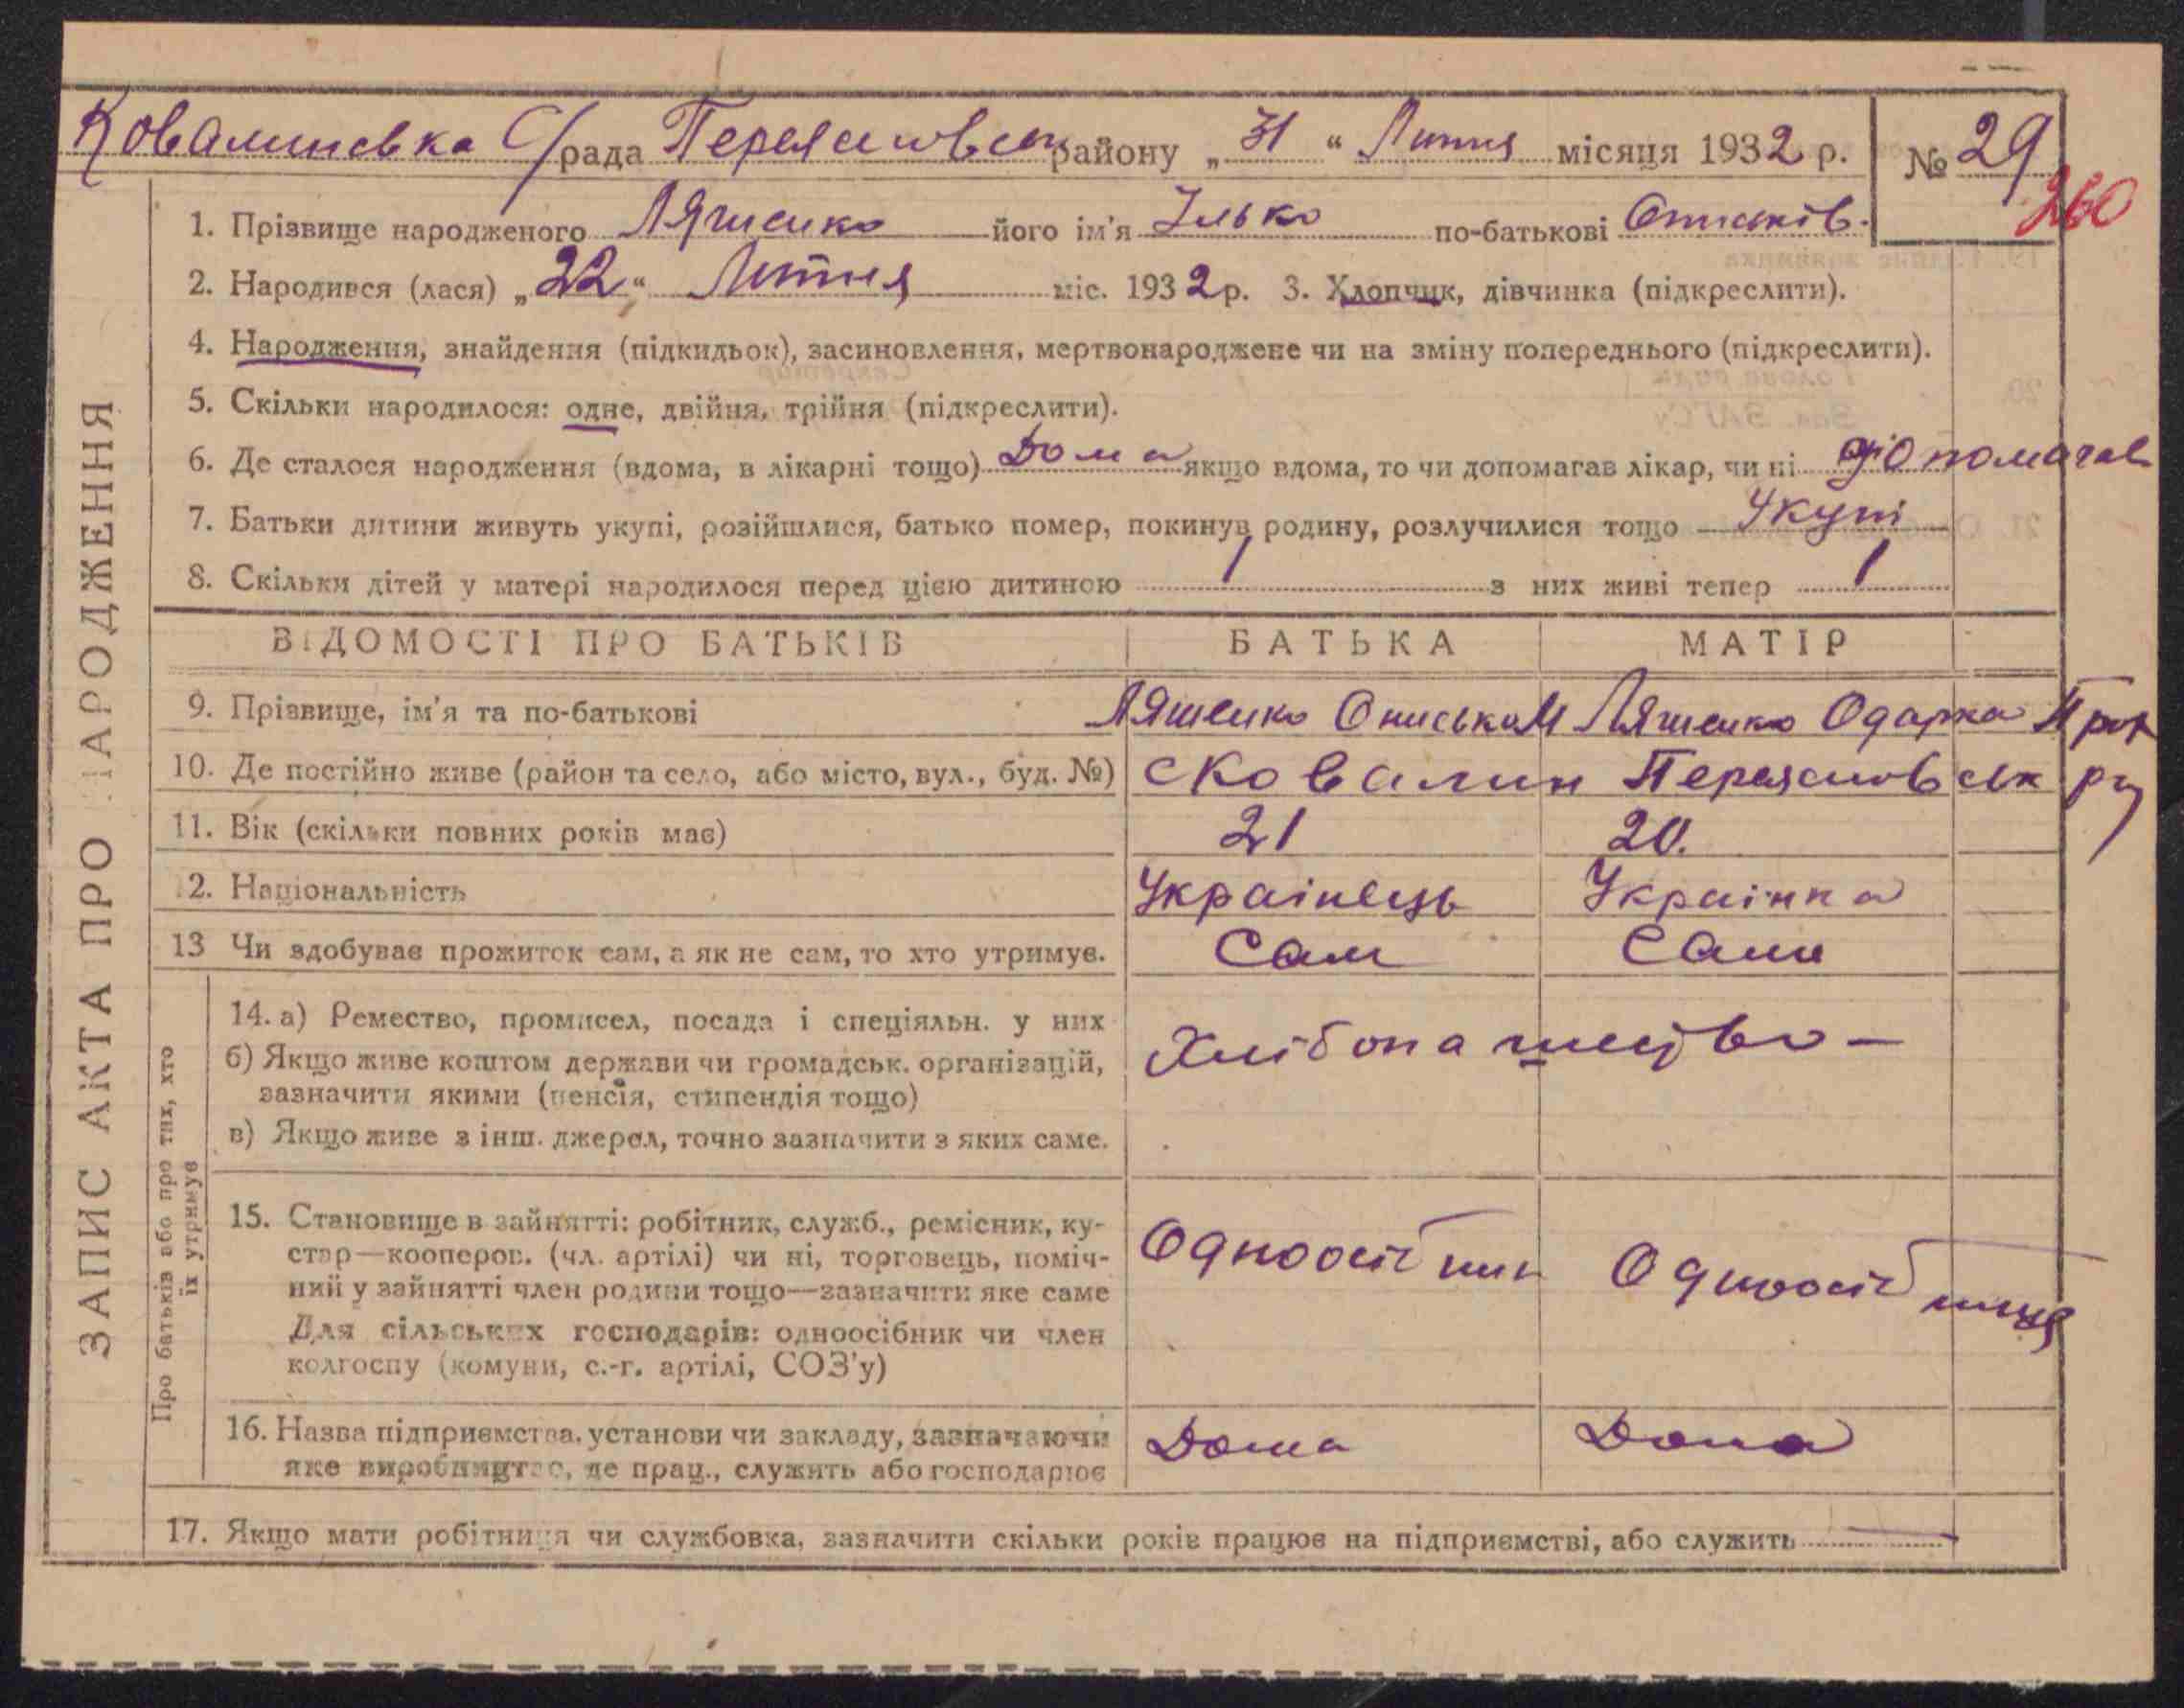 Ковалинська С/рада Переяславськ району „31“ Липня місяця 1932 р. № 29
260
1. Прізвище народженого Ляшенко його ім'я Ілько по-батькові Ониськів.
2. Народився (лася) „22“ Липня міс. 1932 р. 3. Хлопчик, дівчинка (підкреслити).
4. Народження, знайдення (підкидьок), засиновлення, мертвонароджене чи на зміну попереднього (підкреслити).
5. Скільки народилося: одне, двійня, трійня (підкреслити).
6. Де сталося народження (вдома, в лікарні тощо) Дома якщо вдома, то чи допомагав лікар, чи ні допомагав
7. Батьки дитини живуть укупі, розійшлися, батько помер, покинув родину, розлучилися тощо Укупі
8. Скільки дітей у матері народилося перед цією дитиною 1 з них живі тепер 1
ВІДОМОСТІ ПРО БАТЬКІВ БАТЬКА МАТІР
9. Прізвище, ім'я та по-батькові Ляшенко Онисько М Ляшенко Одарка Прок
10. Де постійно живе (район та село, або місто, вул., буд. №) с Ковалин Переяславськ р-у
11. Вік (скільки повних років має) 21 20.
12. Національність Українець Українка
13 Чи здобуває прожиток сам, а як не сам, то хто утримує. Сам Сама
14. а) Ремество, промисел, посада і спеціяльн. у них Хлібопашество —
б) Якщо живе коштом держави чи громадськ. організацій,
зазначити якими (пенсія, стипендія тощо)
в) Якщо живе з інш. джерел, точно зазначити з яких саме.
15. Становище в зайнятті: робітник, служб., ремісник, ку-
стар—коопероп. (чл. артілі) чи ні, торговець, поміч-
ний у зайнятті член родини тощо—зазначити яке саме
Для сільських господарів: одноосібник чи член
колгоспу (комуни, с.-г. артілі, СОЗ'у)
Одноосібник Одноосібниця
16. Назва підприємства, установи чи закладу, зазначаючи
яке виробництво, де прац., служить або господарює
Дома Дома
17. Якщо мати робітниця чи службовка, зазначити скільки років працює на підприємстві, або служить —
ЗАПИС АКТА ПРО НАРОДЖЕННЯ
Про батьків або про тих, хто
їх утримує